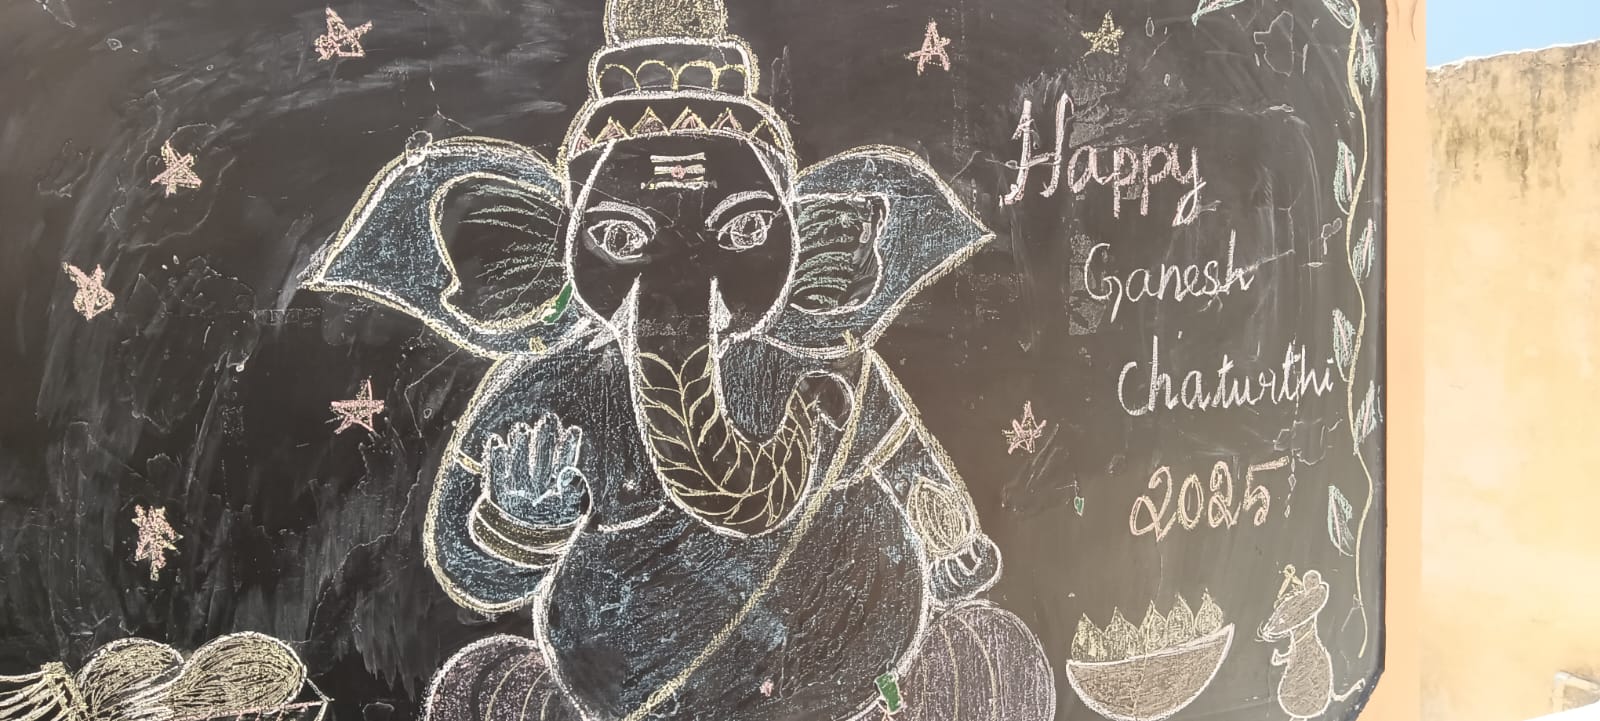 Happy
Ganesh
Chaturthi
2025